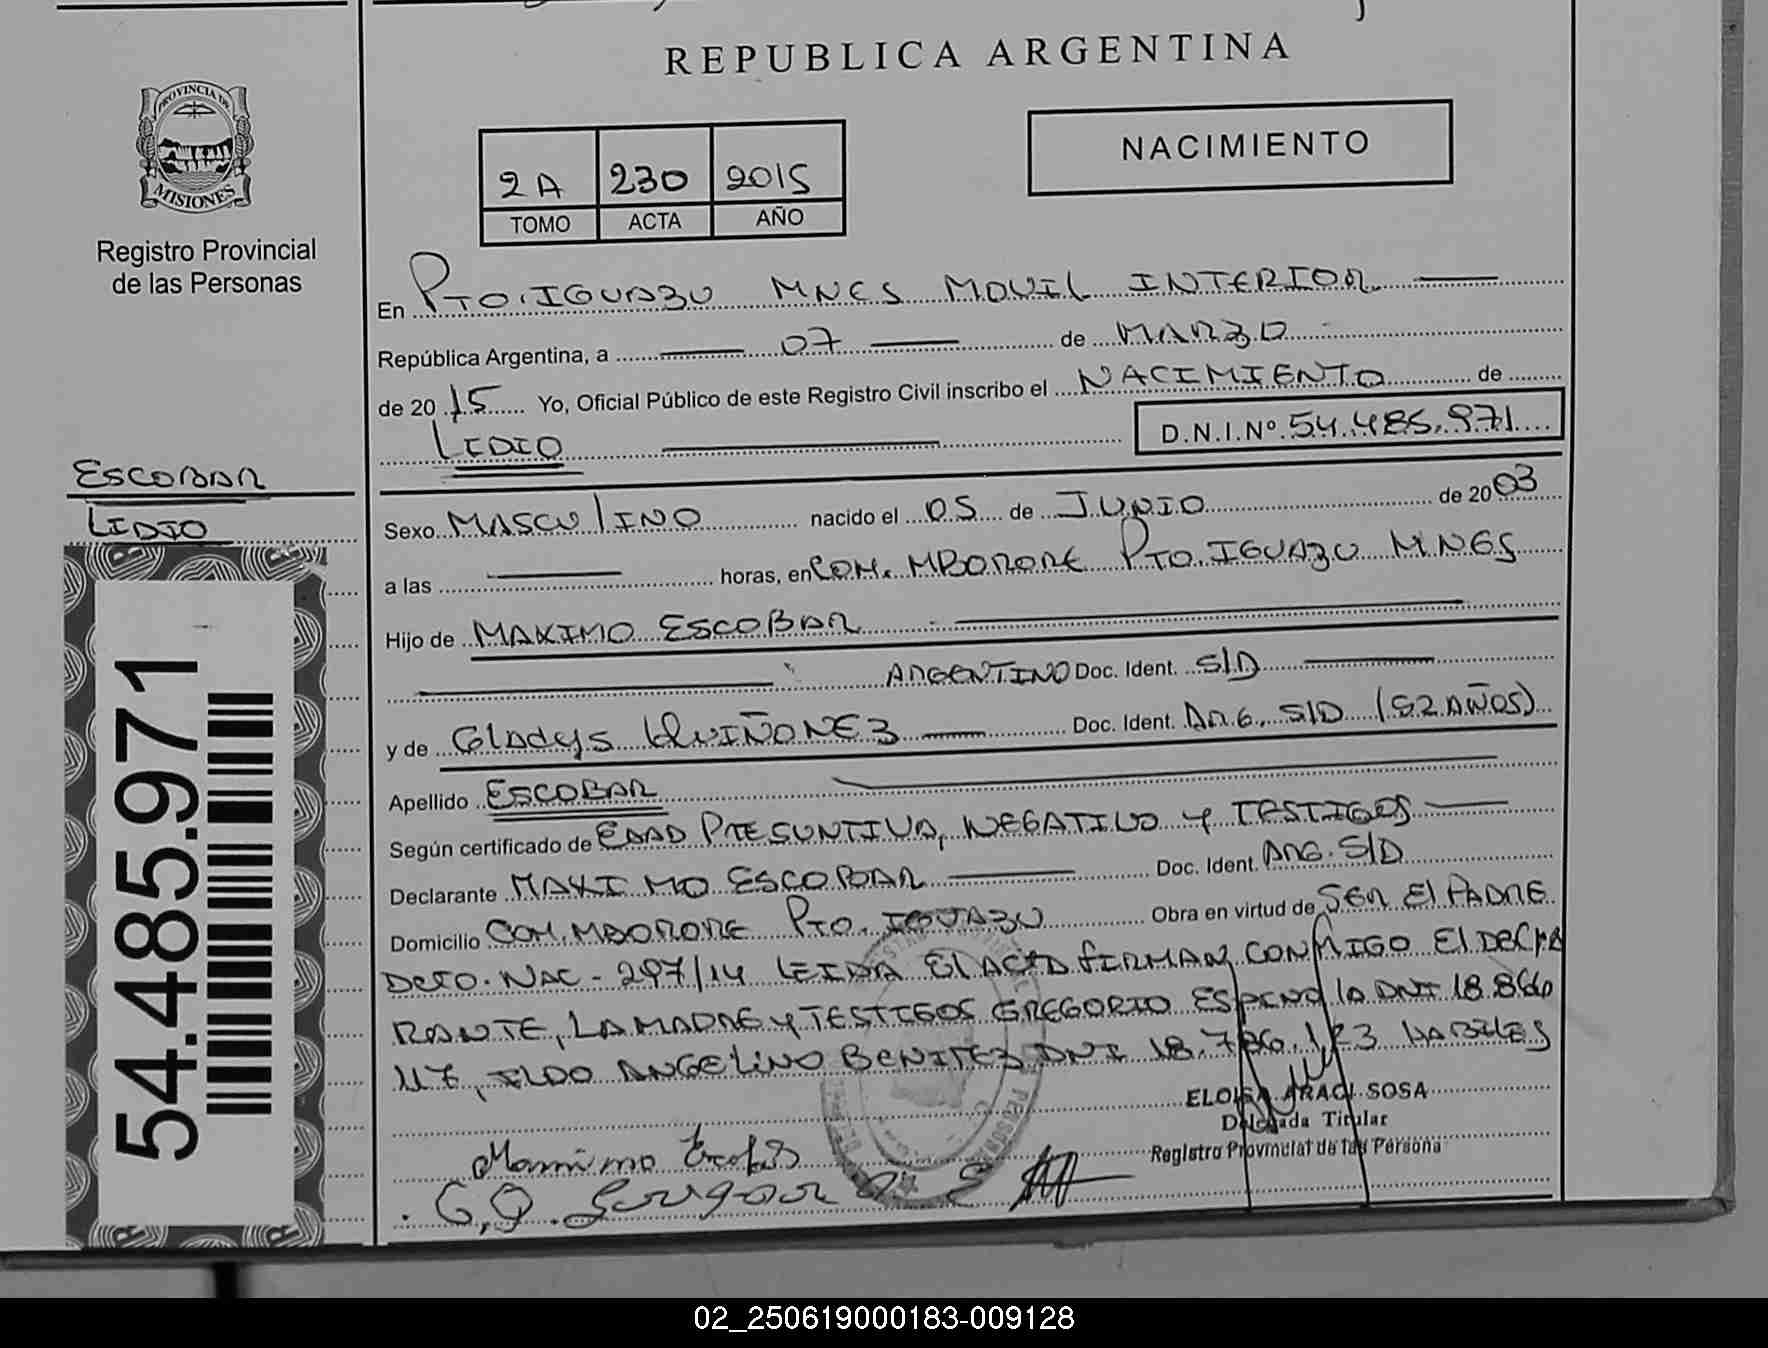 REPUBLICA ARGENTINA
PROVINCIA DE
MISIONES
Registro Provincial
de las Personas
NACIMIENTO
2A 230 2015
TOMO ACTA AÑO
En PTO. IGUAZU MNES MOVIL INTERIOR
República Argentina, a 07 de MARZO
de 2015 Yo, Oficial Público de este Registro Civil inscribo el NACIMIENTO de
LIDIO D.N.I.Nº 54.485.971
ESCOBAR
LIDIO
Sexo MASCULINO nacido el 05 de JUNIO de 2003
a las horas, en COM. MBORORE PTO. IGUAZU MNES
Hijo de MAXIMO ESCOBAR
ARGENTINO Doc. Ident. S/D
y de Gladys QUIÑONEZ Doc. Ident. ARG. S/D (52 AÑOS)
Apellido ESCOBAR
Según certificado de EDAD PRESUNTIVA, NEGATIVO Y TESTIGOS
Declarante MAXIMO ESCOBAR Doc. Ident. ARG. S/D
Domicilio COM. MBORORE PTO. IGUAZU Obra en virtud de SER El PADRE
DCTO. NAC - 297/14 LEIDA El ACTA FIRMAN CONMIGO El DECLA
RANTE, LA MADRE Y TESTIGOS GREGORIO DNI 18.866
117, ILDO ANGELINO BENITEZ DNI 18.786.123 HABILES
ELOISA ARACI SOSA
Delegada Titular
Registro Provincial de las Persona
54.485.971
02_250619000183-009128